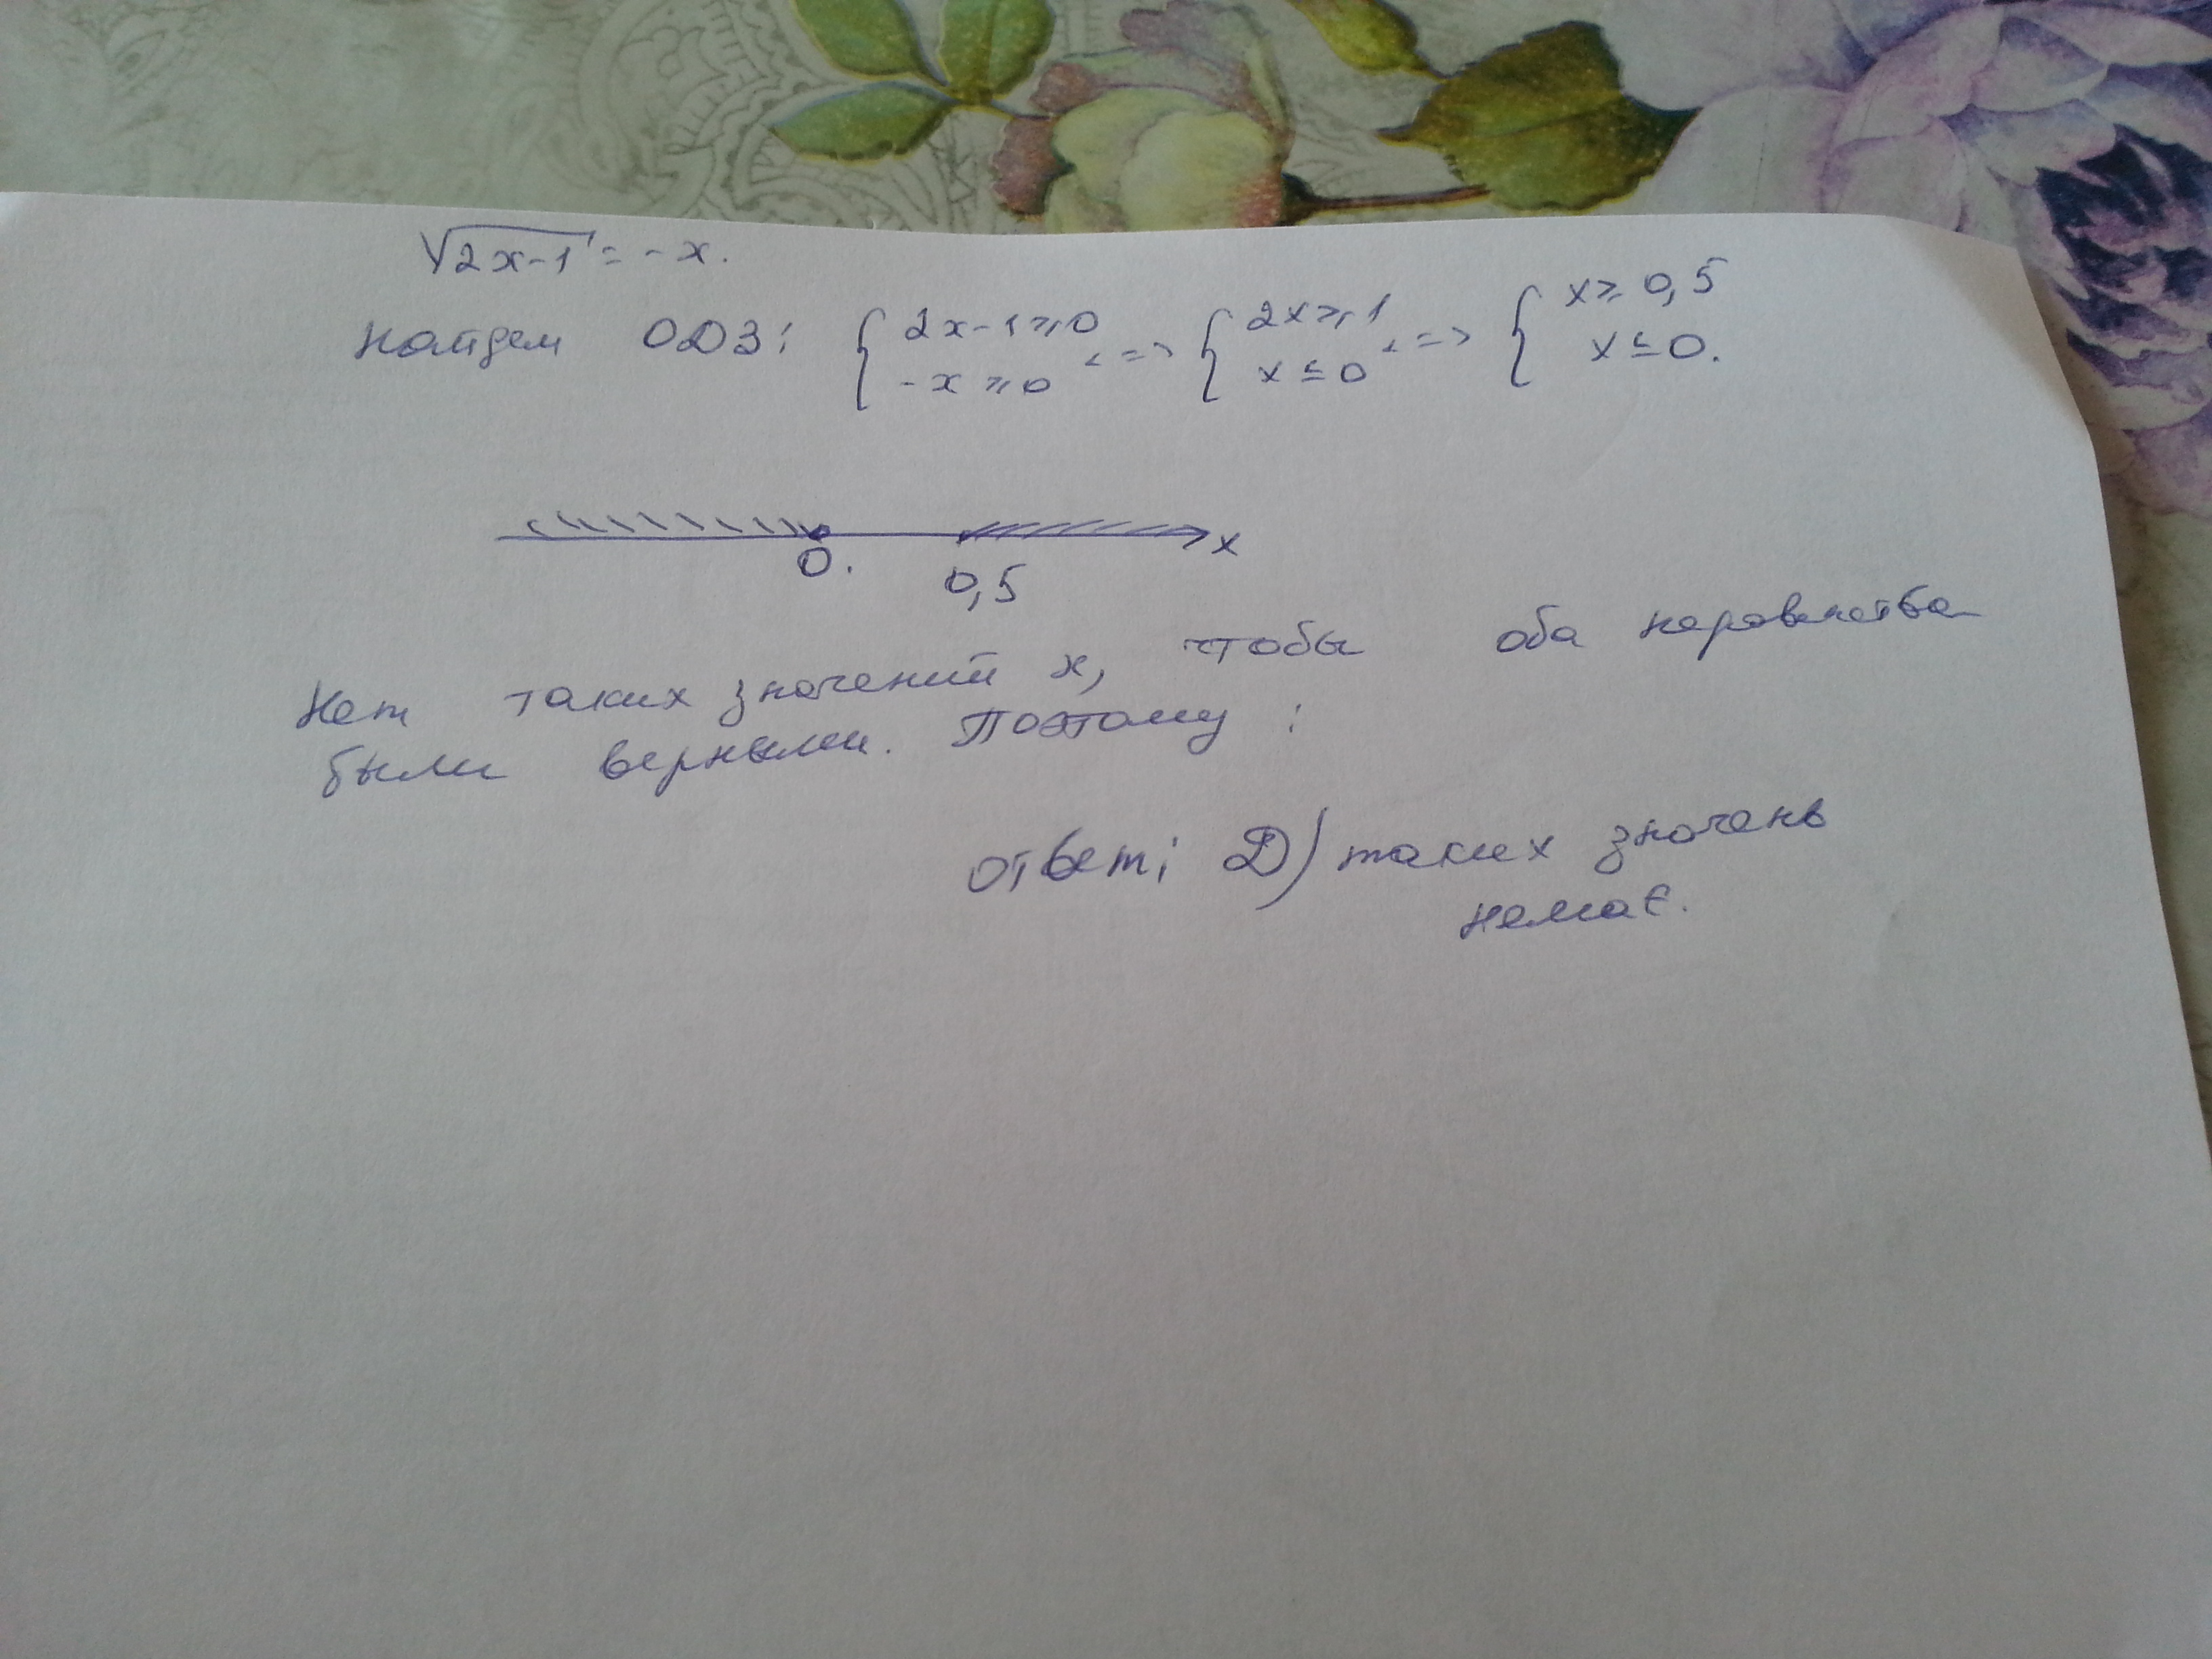 √2x-1 = -x.
Найдем ОДЗ: { 2x-1≥0 <=> { 2x≥1 <=> { x≥0,5
-x≥0 x≤0 x≤0.
0. 0,5 x
Нет таких значений x, чтобы оба неравенства
были верными. Поэтому:
ответ: D) таких значень
немає.